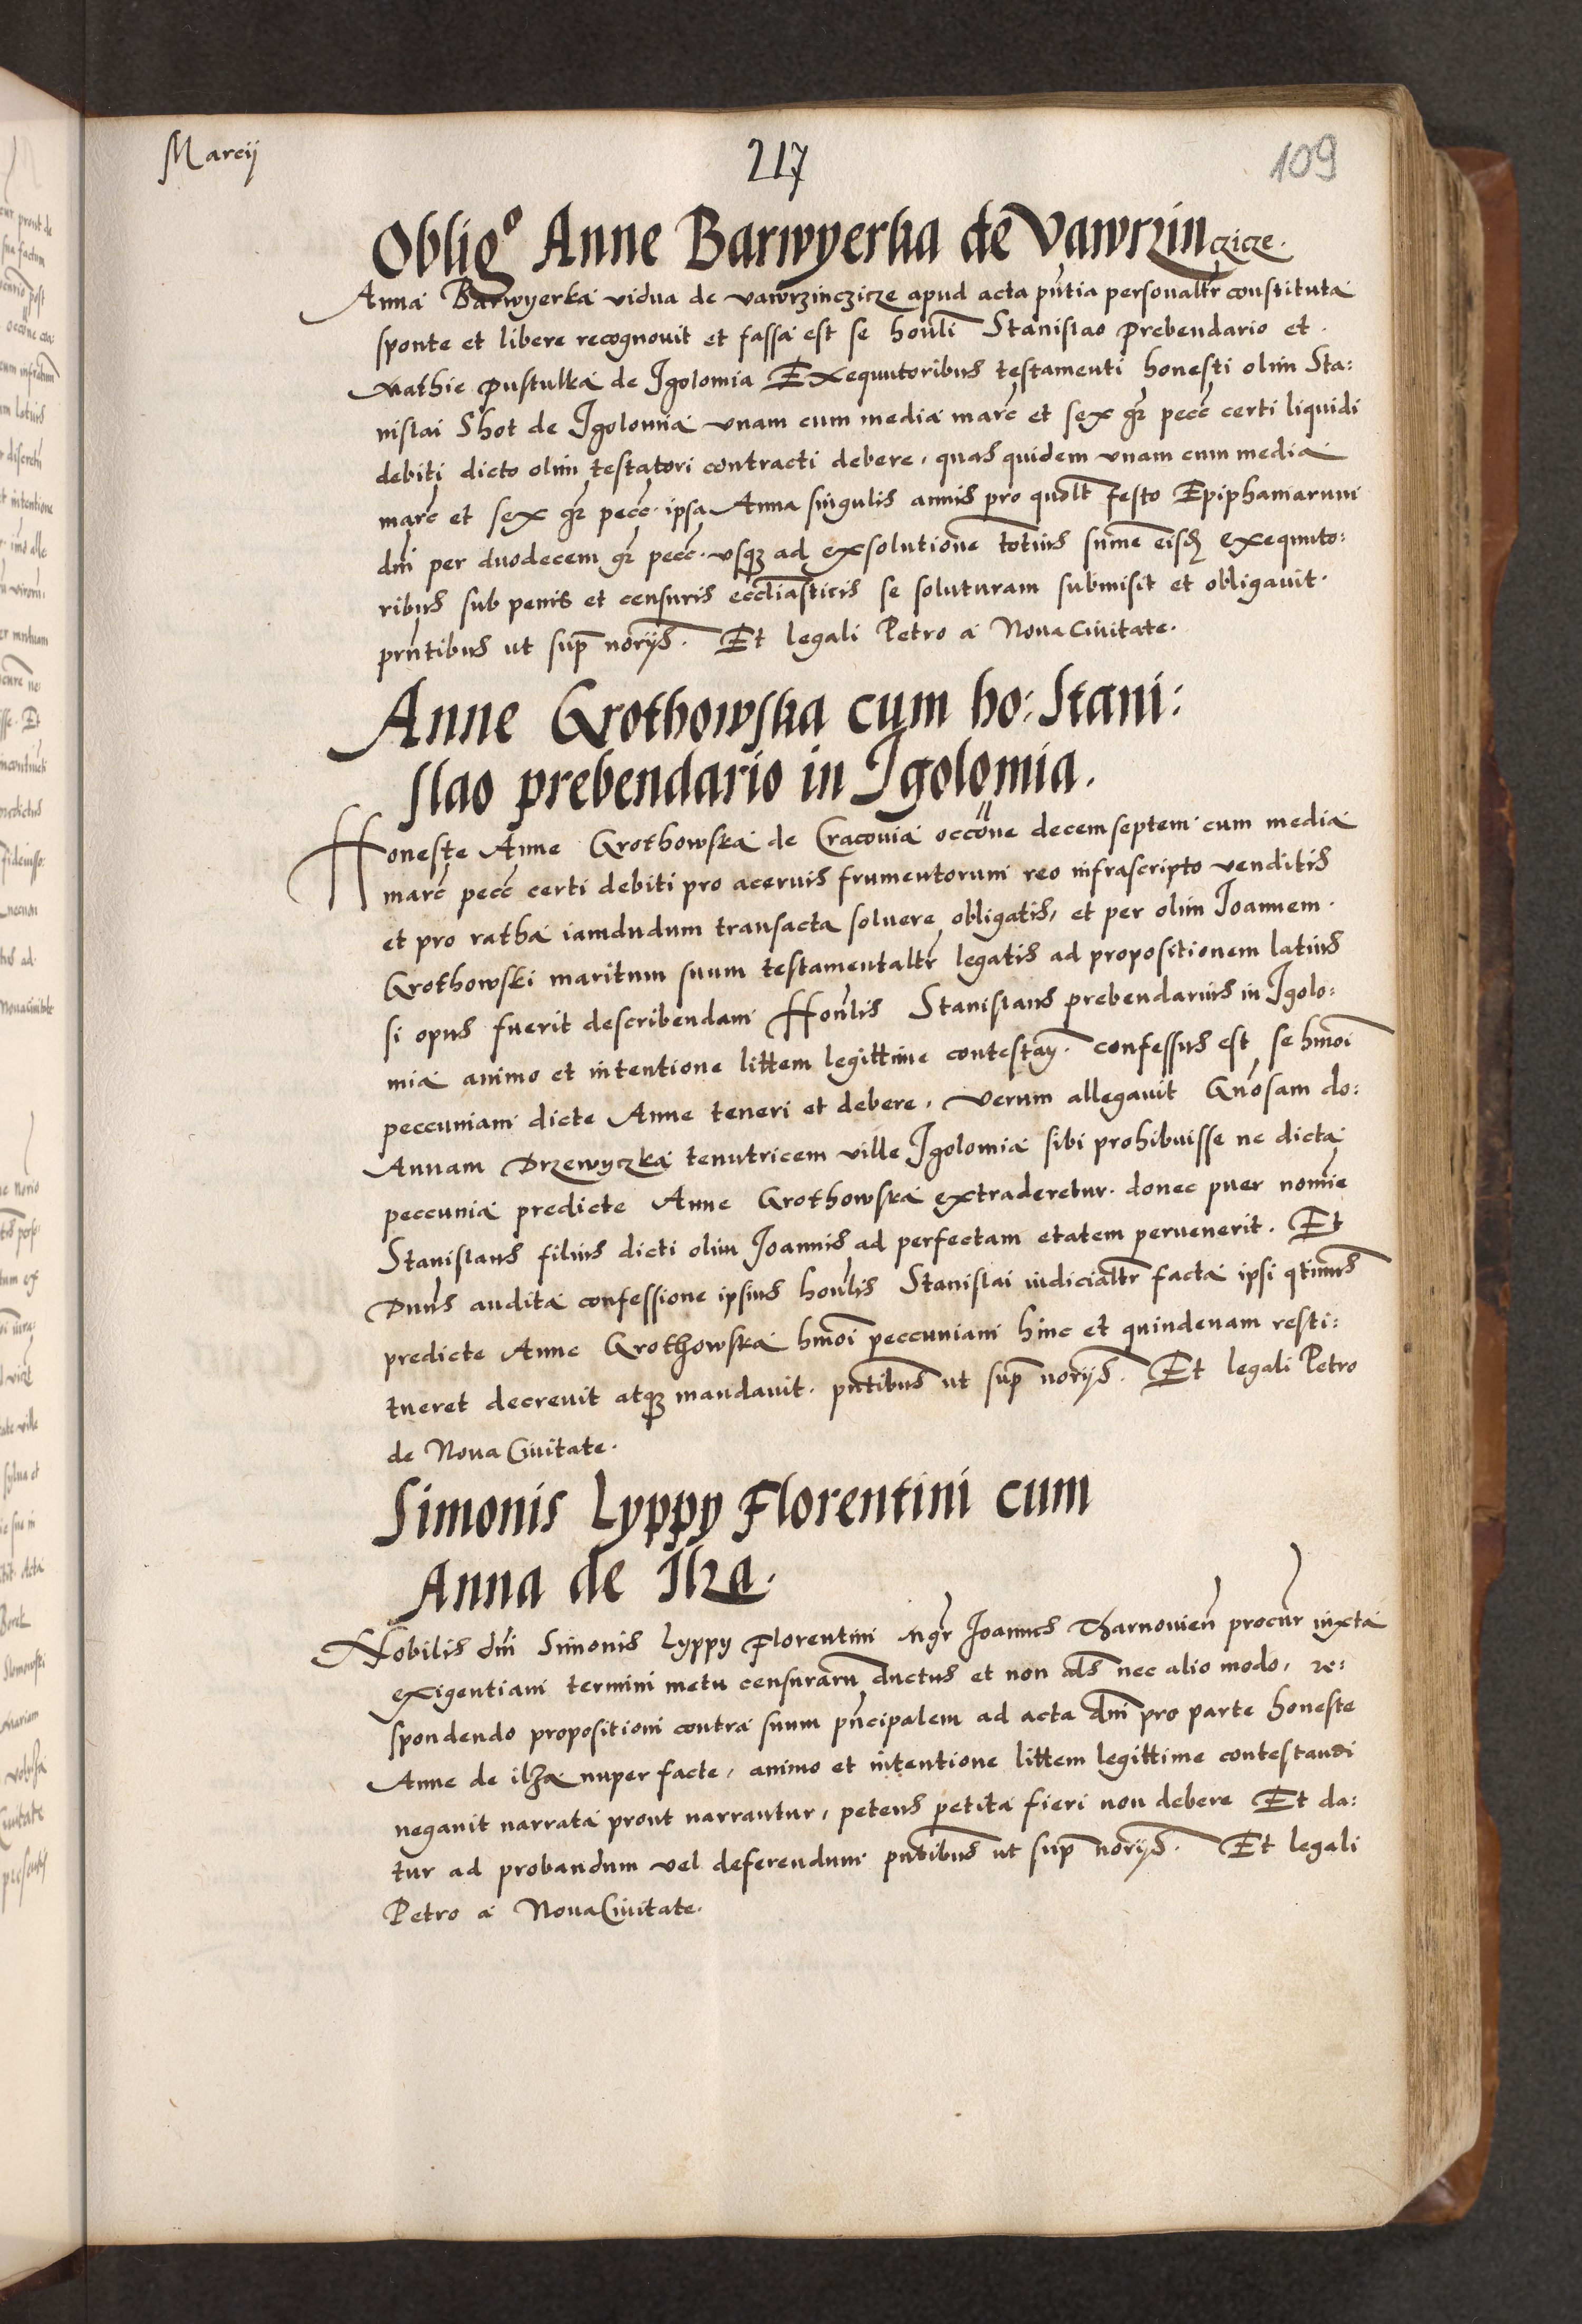 Marcij
217
109
Oblig⁰ Anne Barwyerka de Vawrzinczicze.
Anna Barwyerka vidua de vawrzinczicze apud acta pn̄tia personaltr̄ constituta
sponte et libere recognouit et fassa est se honlī Stanislao Prebendario et
Mathie Pustulka de Igolomia Exequutoribus testamenti honesti olim Sta:
nislai Skot de Igolomia vnam cum media marc̄ et sex gr̄ pecc̄ certi liquidi
debiti dicto olim testatori contracti debere, quas quidem vnam cum media
marc̄ et sex gr̄ pecc̄. ipsa Anna singulis annis pro quolt̄ festo Epiphaniarum
dnī per duodecem gr̄ pecc̄. vsqȝ ad exsolutionē totius summē eisd̄ exequuto:
ribus sub penis et censuris eccliasticis se soluturam submisit et obligauit.
prn̄tibus ut sup̄ norijs. Et legali Petro a Noua Ciuitate.
Anne Grothowska cum ho: Stani:
slao prebendario in Igolomia.
Honeste Anne Grothowska de Cracouia occōne decemseptem cum media
marc̄ pecc̄ certi debiti pro aceruis frumentorum reo infrascripto venditis
et pro ratha iamdudum transacta soluere obligatis, et per olim Ioannem
Grothowski maritum suum testamentaltr̄ legatis ad propositionem latius
si opus fuerit describendam Honlis Stanislaus prebendarius in Igolo:
mia animo et intentione littem legittime contestan̄. confessus est se hmōi
peccuniam dicte Anne teneri et debere, verum allegauit Gn̄osam do:
Annam Drzewyczka tenutricem ville Igolomia sibi prohibuisse ne dicta
peccunia predicte Anne Grothowska extraderetur. donec puer nomīe
Stanislaus filius dicti olim Joannis ad perfectam etatem peruenerit. Et
Dnus audita confessione ipsius honlis Stanislai iudicialtr̄ facta ipsi qtinus
predicte Anne Grothowska hmōi peccuniam hinc et quindenam resti:
tueret decreuit atqȝ mandauit. pn̄tibus ut sup̄ norijs. Et legali Petro
de Noua Ciuitate.
Simonis Lyppy Florentini cum
Anna de Ilza.
Nobilis dnī Simonis Lyppy Florentini Mgr̄ Joannes Tharnouien̄ procur̄ iuxta
exigentiam termini metu censurarū ductus et non als̄ nec alio modo, re:
spondendo propositioni contra suum pn̄cipalem ad acta dnī pro parte honeste
Anne de ilza nuper facte, animo et intentione littem legittime contestandi
negauit narrata prout narrantur, petens petita fieri non debere Et da:
tur ad probandum vel deferendum pn̄tibus ut sup̄ norijs. Et legali
Petro a Noua Ciuitate.